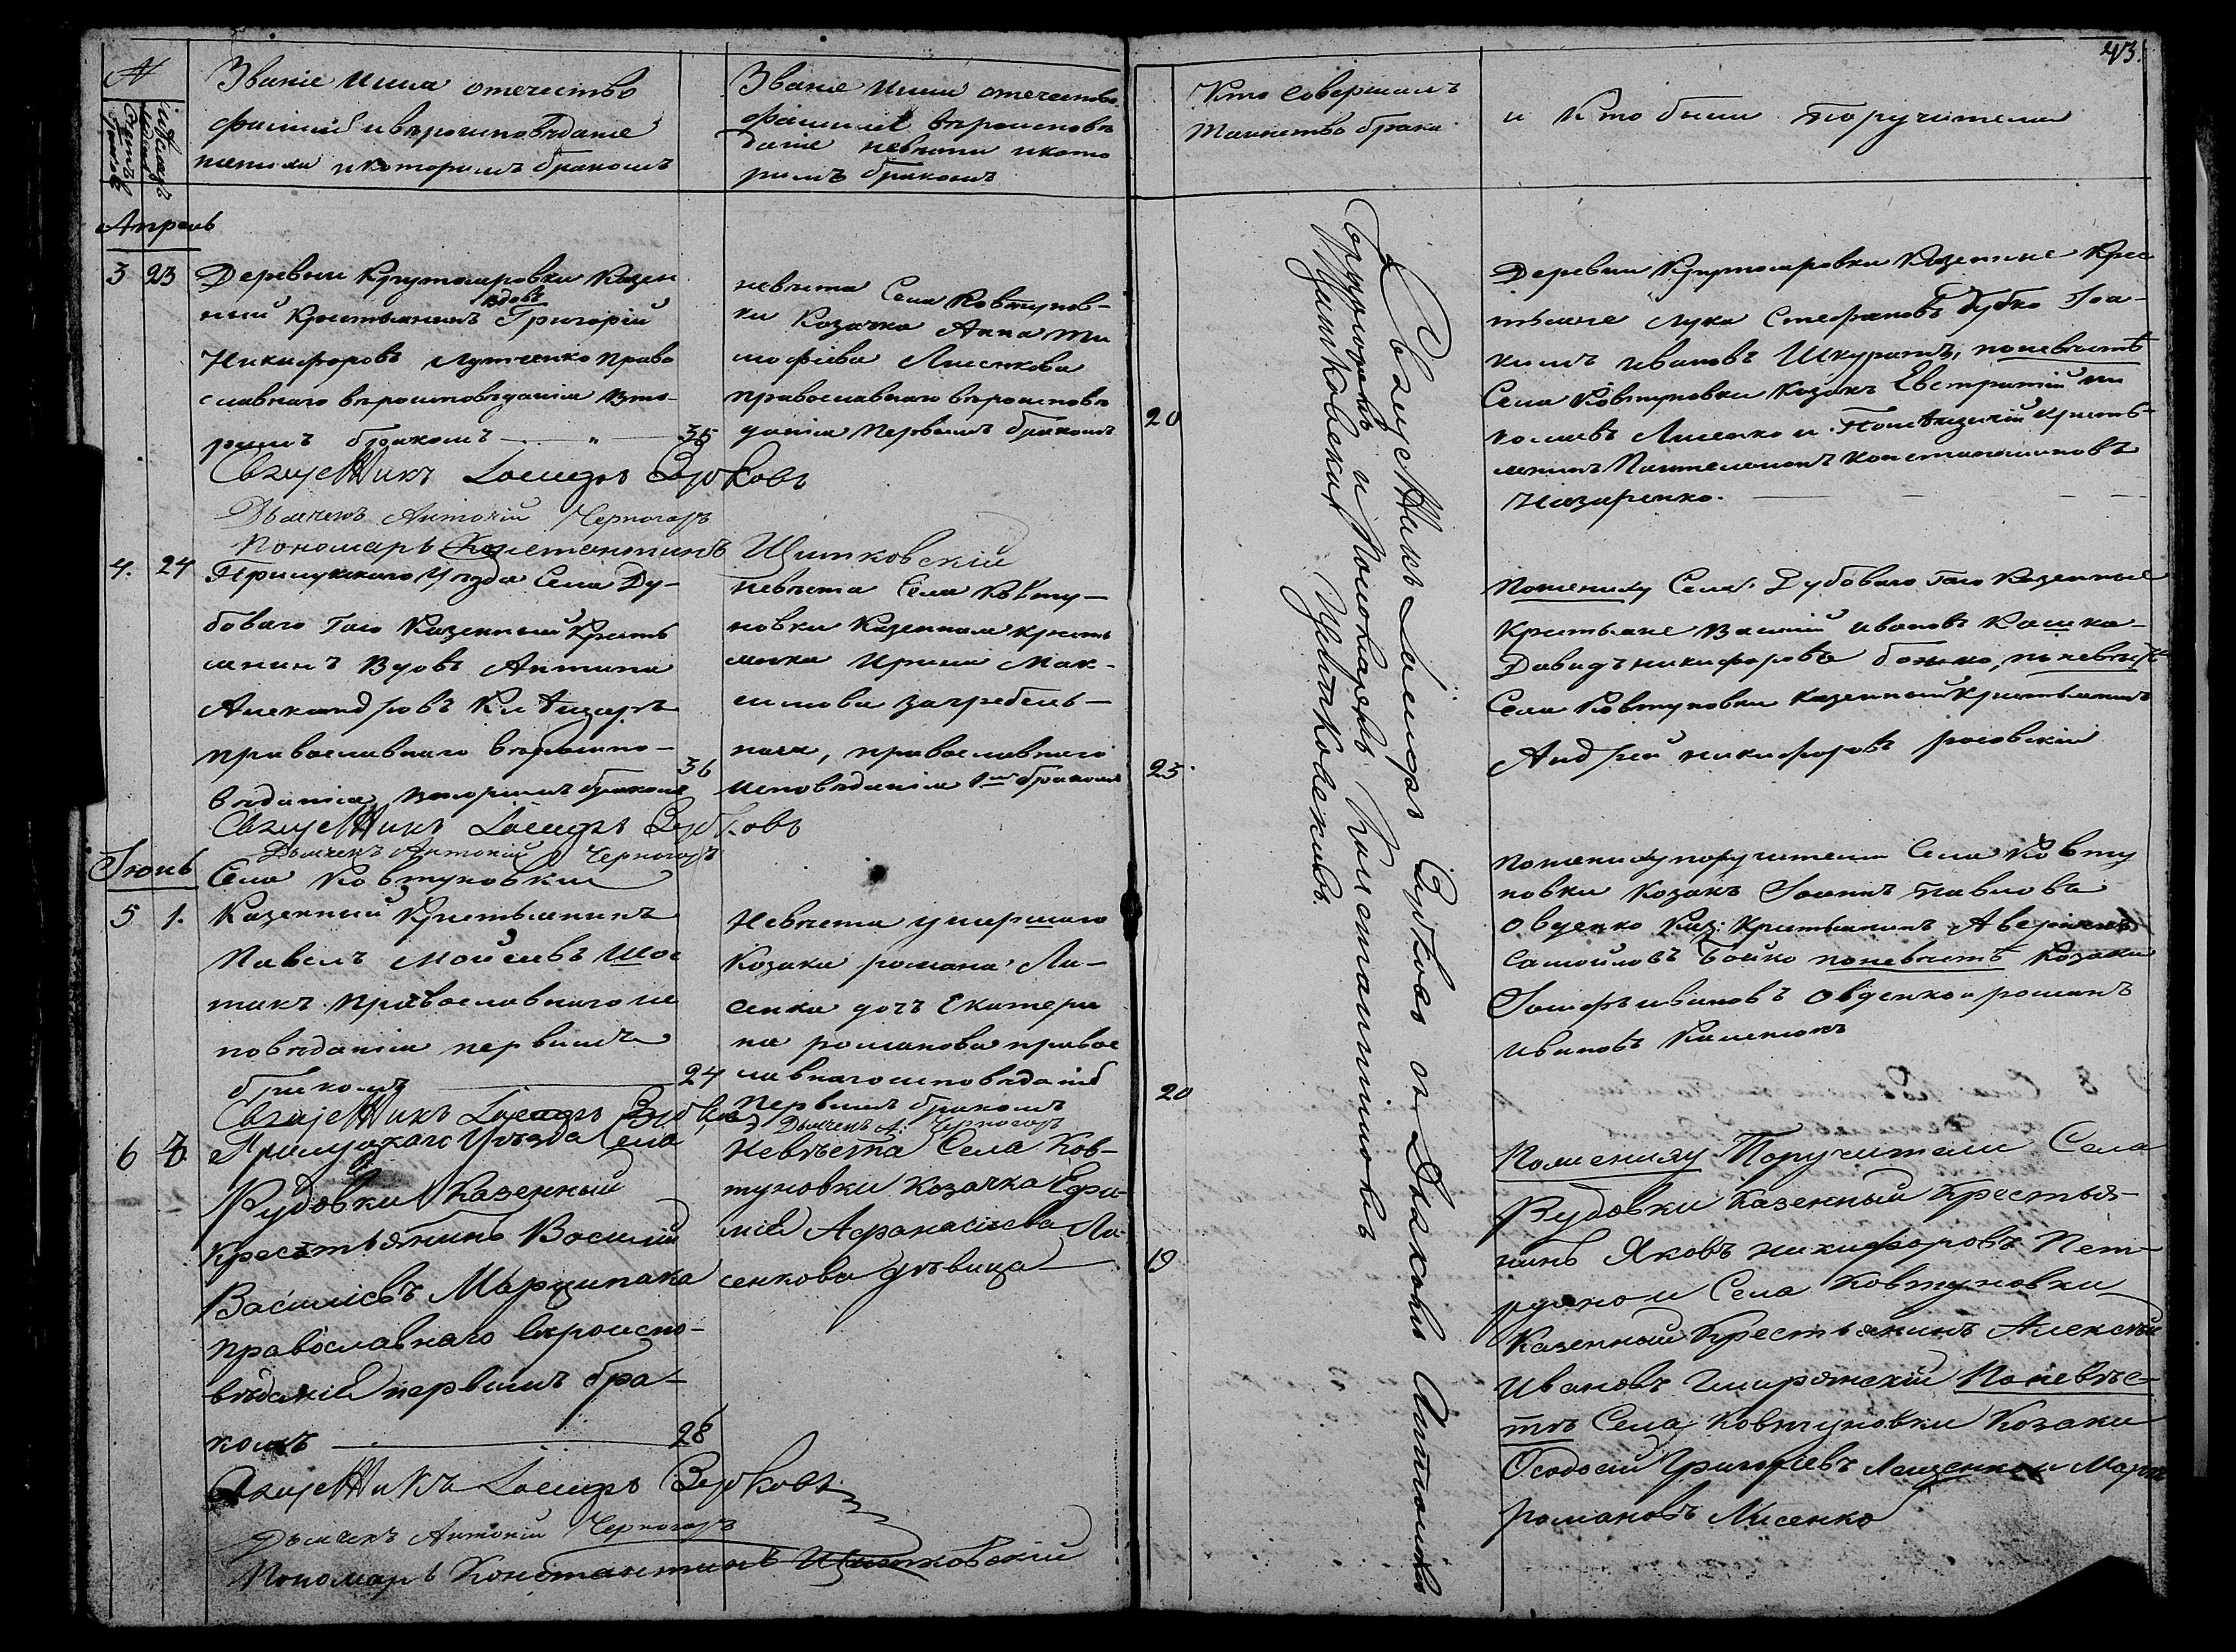 43.
№
Званіе имя отечество
фамиліи и вѣроисповѣданіе
жениха и которымъ бракомъ
Званіе имя отечество
фамиліи вѣроисповѣ
даніе невѣсты и кото
рымъ бракомъ
Кто совершалъ
таинство брака
и Кто были поручители
Апрель
3 23
Деревни Крутояровки Казен
вдовъ
ный Крестьянинъ Григорій
Никифоровъ Лутченко право
славнаго вѣроисповѣданія вто-
рымъ бракомъ 35
невѣста Села Ковтунов-
ки Козачка Анна Ти
мофіева Лисенкова
православнаго вѣроисповѣ
данія первымъ бракомъ
20
Деревни Крутояровки Казенные Крес
тьяне Лука Стефановъ Бубко Іоа-
кимъ Ивановъ Шкуратъ, по невѣстѣ
Села Ковтуновки Козакъ Евстратій
Лисенко и Крестья-
нинъ Пантелеимонъ Константиновъ
Назаренко.
Священникъ
Дьячекъ Антоній Черногоръ
Пономарь Константинъ Щитковскій
4. 24
Прилукскаго Уѣзда Села Ду-
боваго Гаю Казенный Кресть
янинъ Вдовъ Антипа
Александровъ
православнаго вѣроиспо-
вѣданія вторымъ бракомъ 36
невѣста Села Ковту-
новки Казенная Кресть
янка Ирина Мак-
симова Загребель-
ная, православнаго
исповѣданія 1мъ бракомъ
25
По жениху Села Дубоваго Гаю Казенные
Крестьяне Василій Ивановъ Кашка-
Давидъ Никифоровъ по невѣстѣ
Села Ковтуновки Казенный Крестьянинъ
Андрей Никифоровъ
Священникъ
Дьячекъ Антоній Черногоръ
Іюнь
Села Ковтуновки
5 1.
Казенный Крестьянинъ
Павелъ Моисеевъ Шос
такъ Православнаго ис
повѣданія первымъ
бракомъ 24
Невѣста умершаго
Козака Романа Ли-
сенка дочь Екатери
на Романова правос
лавнаго исповѣданія
первымъ бракомъ
20
По жениху поручители Села Ковту
новки Козакъ Іоаннъ Павловъ
Овденко Каз: Крестьянинъ
Самойловъ Бойко по невѣстѣ Козаки
Іосифъ Ивановъ Овденко и Романъ
Ивановъ
Священникъ
Дьячекъ А. Черногоръ
6
Прилуцкаго Уѣзда Села
Рудовки Казенный
Крестьянинъ Василій
Василіевъ Марципака
православнаго вѣроиспо-
вѣданія первымъ бра-
комъ 28
Невѣста Села Ков-
туновки Козачка Ефи-
мія Афанасіева Ли-
сенкова дѣвица
19
По жениху Поручители Села
Рудовки Казенный Крестья-
нинъ Яковъ Никифоровъ Пет-
и Села Ковтуновки
Казенный Крестьянинъ Алексѣй
Ивановъ По невѣс-
тѣ Села Ковтуновки Козаки
Ѳеодосій Григоріевъ
Романовъ Лисенко
Священникъ
Дьячекъ Антоній Черногоръ
Пономарь Константинъ Щитковскій